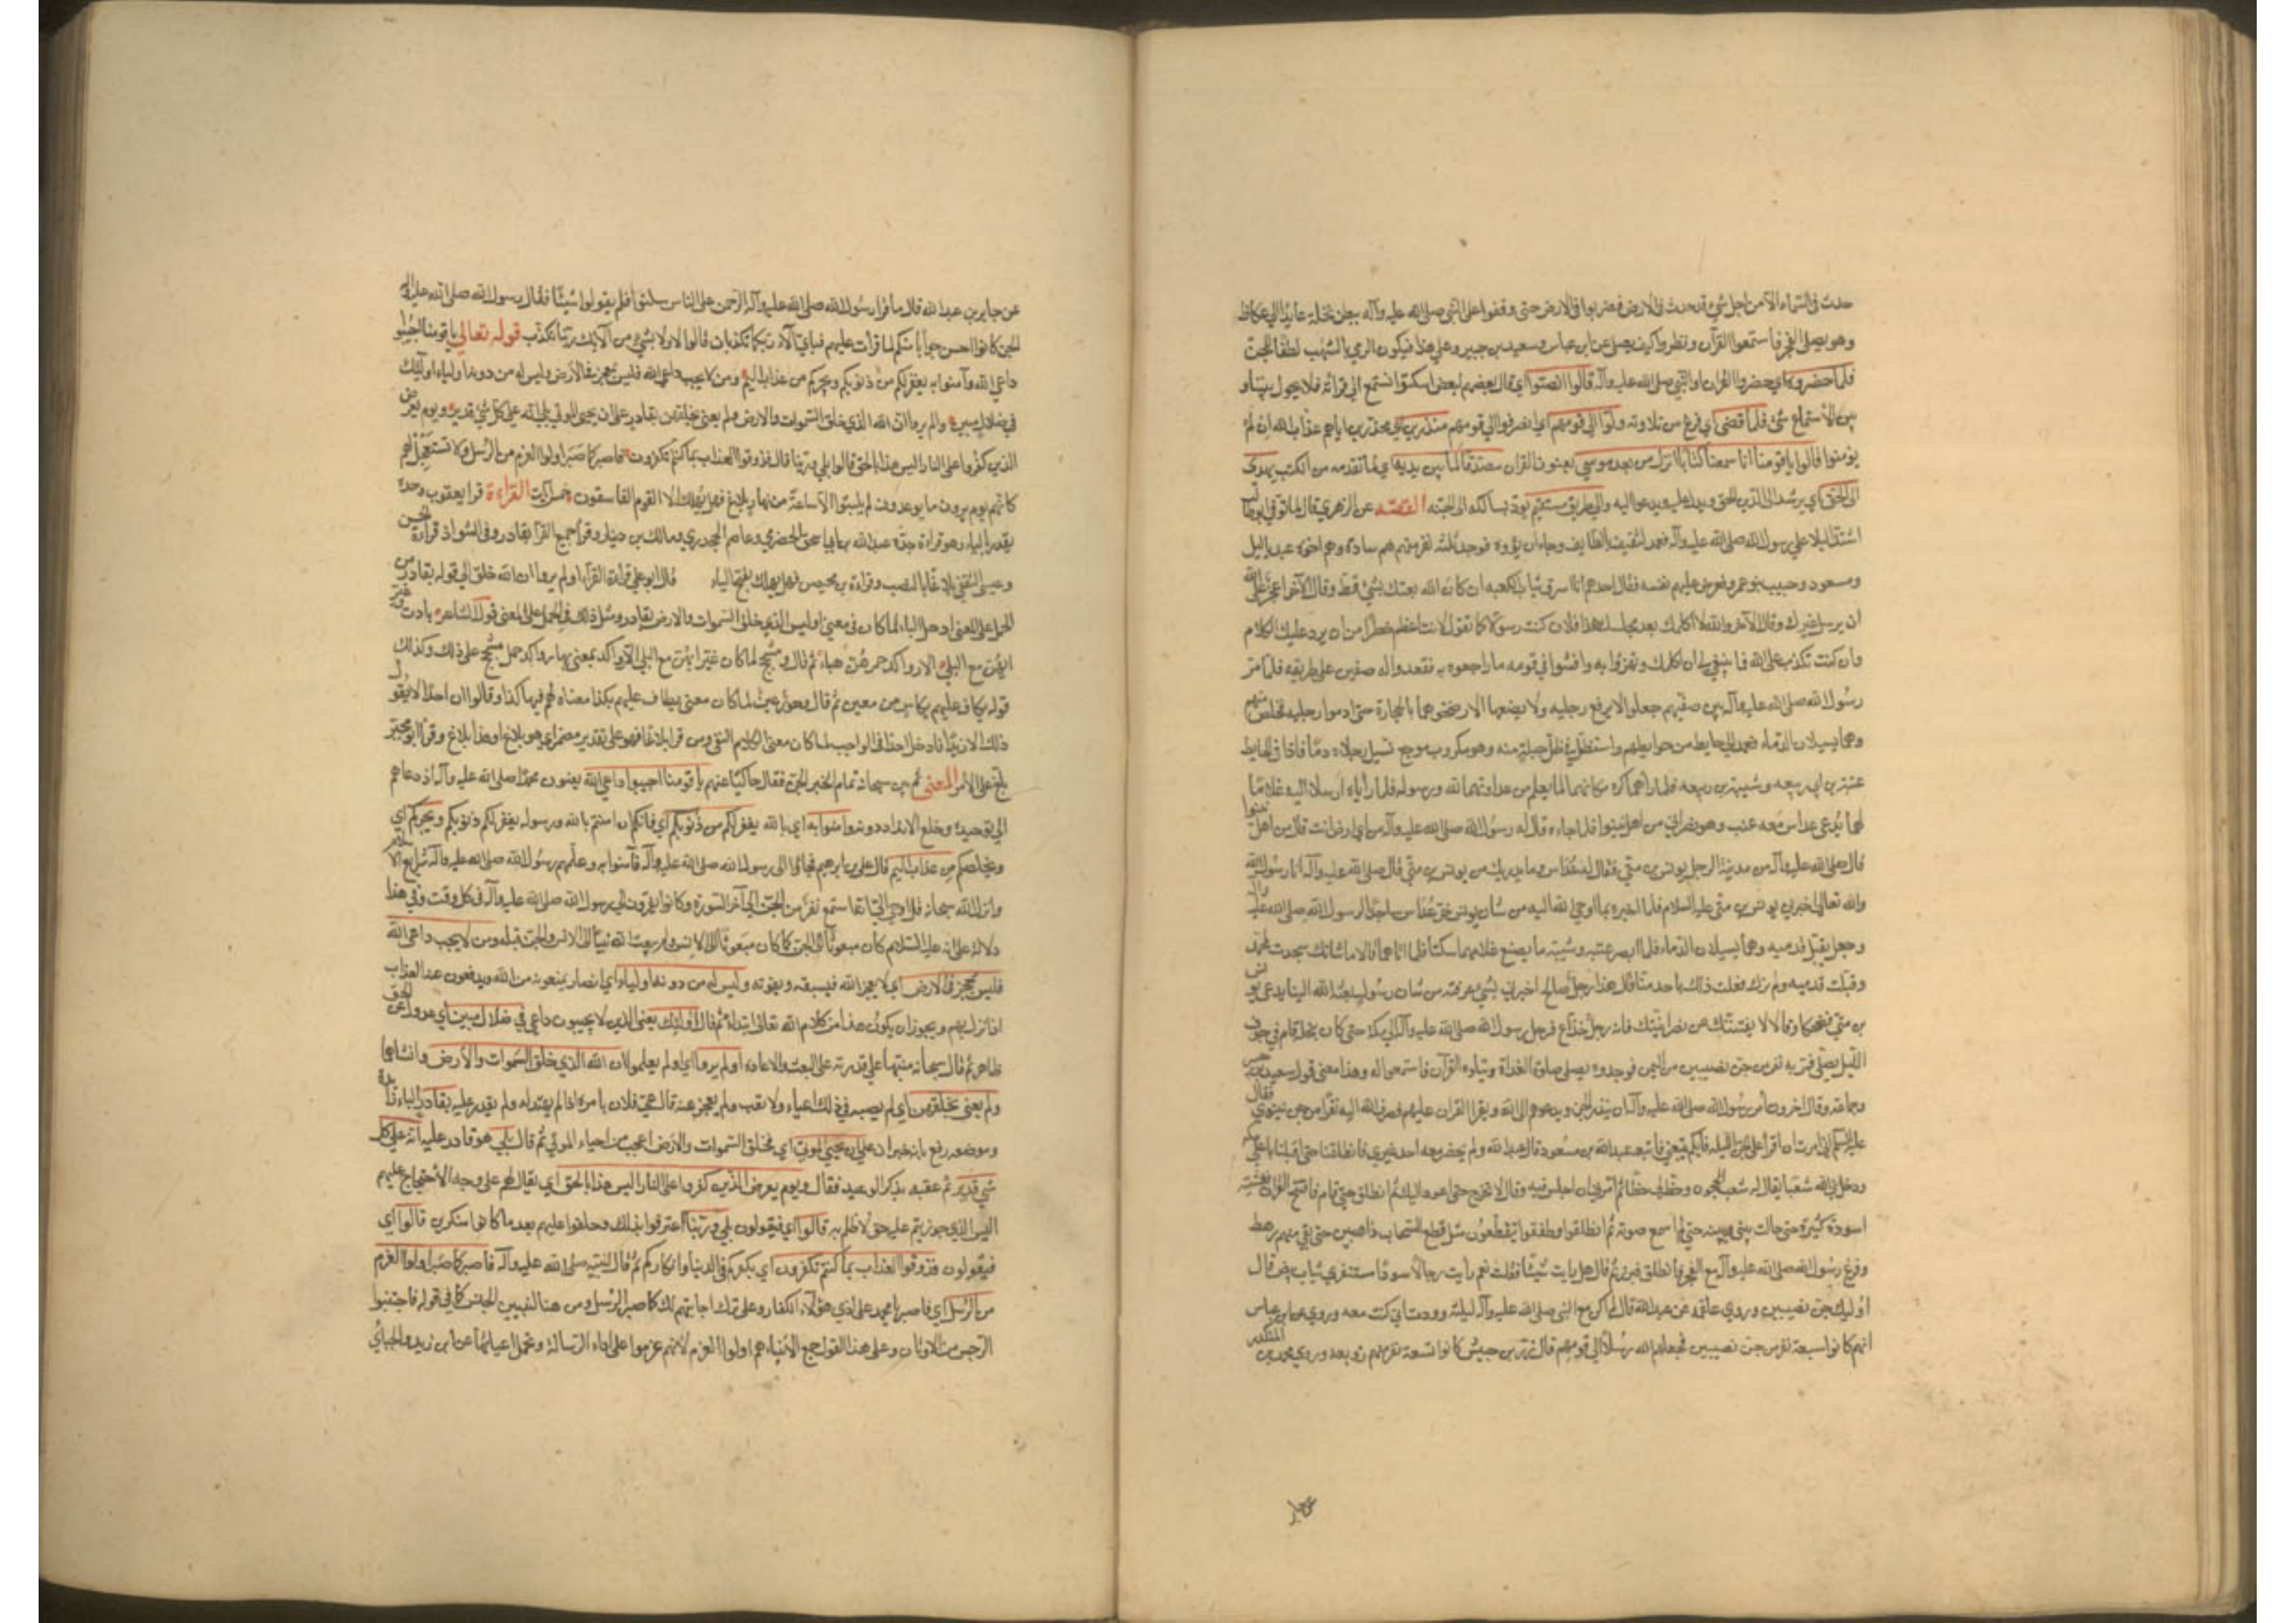 حدث في السماء الا من اجل شيء قد حدث في الارض فضربوا في الارض حتى وقفوا على النبي صلى الله عليه وآله ببطن نخلة عايدا الى عكاظ
وهو يصلي الفجر فاستمعوا القرآن ونظروا كيف يصلي عن ابن عباس وسعيد بن جبير وعلى هذا فيكون الرمي بالشهب لطفا للجن
فلما حضروه اي حضروا القران او النبي صلى الله عليه وآله قالوا انصتوا اي قال بعضهم لبعض اسكتوا لنستمع الى قرائته فلا يحول بيننا و
بين الاستماع شيء فلما قضى اي فرغ من تلاوته ولوا الى قومهم اي انصرفوا الى قومهم منذرين اي محذرين اياهم عذاب الله ان لم
يؤمنوا قالوا يا قومنا انا سمعنا كتابا انزل من بعد موسى يعنون القران مصدقا لما بين يديه اي لما تقدمه من الكتب يهدي
الى الحق اي يرشد الى الدين الحق ويدل عليه ويدعو اليه والى طريق مستقيم يؤدي بسالكه الى الجنة القصة عن الزهري قال لما توفي ابو طالب
اشتد البلاء على رسول الله صلى الله عليه وآله فعمد لثقيف بالطايف رجاء ان يؤوه فوجد ثلثة نفر منهم هم سادة وهم اخوة عبد ياليل
ومسعود وحبيب بنو عمرو فعرض عليهم نفسه فقال احدهم انا اسرق ثياب الكعبه ان كان الله بعثك بشيء قط وقال الآخر اعجز على الله
ان يرسل غيرك وقال الآخر والله لا اكلمك بعد مجلسك هذا فلان كنت رسولا كما تقول لانت اعظم خطرا من ان يرد عليك الكلام
وان كنت تكذب على الله فما ينبغي لي ان اكلمك وتهزؤا به وافشوا في قومه ما راجعوه به فقعدوا له صفين على طريقه فلما مر
رسول الله صلى الله عليه وآله بين صفيهم جعلوا لا يرفع رجليه ولا يضعهما الا رضخوهما بالحجارة حتى ادموا رجليه فخلص منهم
وهما يسيلان بالدماء فعمد الى حايط من حوايطهم واستظل في ظل حبلة منه وهو مكروب موجع تسيل رجلاه دما فاذا في الحايط
عتبة بن ابي ربيعه وشيبة بن ربيعه فلما راهما كره مكانهما لما يعلم من عداوتهما لله ورسوله فلما راياه ارسلا اليه غلاما
لهما يدعى عداس معه عنب وهو نصراني من اهل نينوا فلما جاءه قال له رسول الله صلى الله عليه وآله من اي ارض انت قال من اهل نينوا
قال صلى الله عليه وآله من مدينة الرجل يونس بن متى فقال له عداس وما يدريك من يونس بن متى قال صلى الله عليه وآله انا رسول الله
والله تعالى اخبرني يونس بن متى عليه السلام فلما اخبره بما اوحى الله اليه من شان يونس خر عداس ساجدا لرسول الله صلى الله عليه وآله
وجعل يقبل قدميه وهما يسيلان الدماء فلما ابصر عتبه وشيبه ما يصنع غلامهما سكتا فلما اتاهما قالا ما شانك سجدت لمحمد
وقبلت قدميه ولم نرك فعلت ذلك باحد منا قال هذا رجل صالح اخبرني بشيء عرفته من شان رسول بعثه الله الينا يدعى يونس
بن متى فضحكا وقالا لا يفتننك عن نصرانيتك فانه رجل خداع فرجع رسول الله صلى الله عليه وآله الى مكة حتى كان بنخلة قام في جوف
الليل يصلي فمر به نفر من جن نصيبين من اليمن فوجدوه يصلي صلوة الغداة ويتلوا القرآن فاستمعوا له وهذا معنى قول سعيد بن جبير
وجماعة وقال اخرون امر رسول الله صلى الله عليه وآله ان ينذر الجن ويدعوهم الى الله ويقرأ القران عليهم فصرف الله اليه نفرا من جن نينوى فقال
عليه السلام اني امرت ان اقرا على الجن الليله فايكم يتبعني فاتبعه عبد الله بن مسعود قال عبد الله ولم يحضر معه احد غيري فانطلقنا حتى اذا كنا باعلى مكة
ودخل نبي الله شعبا يقال له شعب الحجون وخط لي خطا ثم امرني ان اجلس فيه وقال لا تخرج حتى اعود اليك ثم انطلق حتى قام فافتتح القران فغشيته
اسودة كثيرة حتى حالت بيني وبينه حتى لم اسمع صوته ثم انطلقوا وطفقوا يتقطعون مثل قطع السحاب ذاهبين حتى بقي منهم رهط
وفرغ رسول الله صلى الله عليه وآله مع الفجر فانطلق فبرز ثم قال هل رايت شيئا فقلت نعم رأيت رجالا سودا مستثفري ثياب بيض قال
اوليك جن نصيبين وروى علقمة عن عبد الله قال لم اكن مع النبي صلى الله عليه وآله ليلة ووددت اني كنت معه وروي عن ابن عباس
انهم كانوا سبعة نفر من جن نصيبين فجعلهم الله رسلا الى قومهم قال زر بن حبيش كانوا تسعة نفر منهم زوبعة وروى محمد بن المنكدر
عن جابر
عن جابر بن عبد الله قال لما قرا رسول الله صلى الله عليه وآله الرحمن على الناس سكتوا فلم يقولوا شيئا فقال رسول الله صلى الله عليه وآله
للجن كانوا احسن جوابا منكم لما قرأت عليهم فباي آلاء ربكما تكذبان قالوا لا ولا بشيء من آلائك ربنا نكذب قوله تعالى يا قومنا اجيبوا
داعي الله وآمنوا به يغفر لكم من ذنوبكم ويجركم من عذاب اليم ومن لا يجب داعي الله فليس بمعجز في الأرض وليس له من دونه اولياء اولئك
في ضلال مبين اولم يروا ان الله الذي خلق السموات والارض ولم يعي بخلقهن بقادر على ان يحيي الموتى بلى انه على كل شيء قدير ويوم يعرض
الذين كفروا على النار اليس هذا بالحق قالوا بلى وربنا قال فذوقوا العذاب بما كنتم تكفرون فاصبر كما صبر اولوا العزم من الرسل ولا تستعجل لهم
كانهم يوم يرون ما يوعدون لم يلبثوا الا ساعة من نهار بلاغ فهل يهلك الا القوم الفاسقون خمس آيات القراءة قرا يعقوب وحده
يقدر بالياء وهو قراءة جده عبد الله بن ابي اسحق الحضرمي وعاصم الجحدري ومالك بن دينار وقرا جميع القراء بقادر وفي الشواذ قراءة الحسن
وعيسى الثقفي بلاغا بالنصب وقراءة بن محيصن فهل يهلك بفتح الياء قال ابو علي قراءة القراء اولم يروا ان الله خلق الى قوله بقادر من
الحمل على المعنى ادخل الباء لما كان في معنى اوليس الذي خلق السموات والارض بقادر ومثل ذلك في الحمل على المعنى قول الشاعر بادت وغير
ايهن مع البلى الا رواكد جمرهن هباء ثم قال ومشجج لما كان غير ايهن مع البلى الا رواكد بمعنى بها رواكد حمل مشجج على ذلك وكذلك
قوله يطاف عليهم بكاس من معين ثم قال وحور عين لما كان معنى يطاف عليهم بكذا معناه لهم فيها كذا وقالوا ان احدا لا يقول
ذلك الا زيد فادخل احدا في الواجب لما كان معنى الكلام النفي ومن قرا بلاغا فهو على تقدير مضمر اي هو بلاغ او هذا بلاغ وقرأ ابو مجلز
بلغ على الامر المعنى ثم بين سبحانه تمام الخبر الجن فقال حاكيا عنهم يا قومنا اجيبوا داعي الله يعنون محمدا صلى الله عليه وآله اذ دعاهم
الى توحيده وخلع الانداد دونه وآمنوا به اي بالله يغفر لكم من ذنوبكم اي فانكم ان امنتم بالله ورسوله يغفر لكم ذنوبكم ويجركم اي
ويخلصكم من عذاب اليم قال علي بن ابرهيم فجاؤا الى رسول الله صلى الله عليه وآله فآمنوا به وعلمهم رسول الله صلى الله عليه وآله شرايع الاسلام
وانزل الله سبحانه قل اوحي الي انه استمع نفر من الجن الى آخر السورة وكانوا يفدون الى رسول الله صلى الله عليه وآله في كل وقت وفي هذا
دلالة على انه عليه السلام كان مبعوثا الى الجن كما كان مبعوثا الى الانس ولم يبعث الله نبيا الى الانس والجن قبله ومن لا يجب داعي الله
فليس بمعجز في الارض اي لا يعجز الله فيسبقه ويفوته وليس له من دونه اولياء اي انصار يمنعونه من الله ويدفعون عنه العذاب
اذا نزل بهم ويجوز ان يكون هذا من كلام الله تعالى ابتداء ثم قال اولئك يعني الذين لا يجيبون داعي في ضلال مبين اي عدول عن الحق
ظاهر ثم قال سبحانه منبها على قدرته على البعث والاعادة اولم يروا اي اولم يعلموا ان الله الذي خلق السموات والأرض وانشأهما
ولم يعي بخلقهن اي لم يصبه في ذلك اعياء ولا تعب ولم يعجز عنه يقال عيي فلان بامره اذا لم يهتد له ولم يقدر عليه بقادر الباء زائدة
وموضعه رفع بانه خبر ان على ان يحيي الموتى اي فخلق السموات والارض اعجب من احياء الموتى ثم قال بلى هو قادر عليه انه على كل
شيء قدير ثم عقبه بذكر الوعيد فقال ويوم يعرض الذين كفروا على النار اليس هذا بالحق اي يقال لهم على وجه الاحتجاج عليهم
اليس الذي جوزيتم عليه حق لا ظلم به قالوا اي فيقولون بلى وربنا اعترفوا بذلك وحلفوا عليهم بعد ما كانوا منكرين قالوا اي
فيقولون فذوقوا العذاب بما كنتم تكفرون اي بكفركم في الدنيا وانكاركم ثم قال لنبيه صلى الله عليه وآله فاصبر كما صبر اولوا العزم
من الرسل اي فاصبر يا محمد على اذى هؤلاء الكفار وعلى ترك اجابتهم لك كما صبر الرسل ومن هنا لتبيين الجنس كما في قوله فاجتنبوا
الرجس من الاوثان وعلى هذا القول جميع الأنبياء هم اولوا العزم لانهم عزموا على اداء الرسالة وتحمل اعبائها عن ابن زيد والجبائي